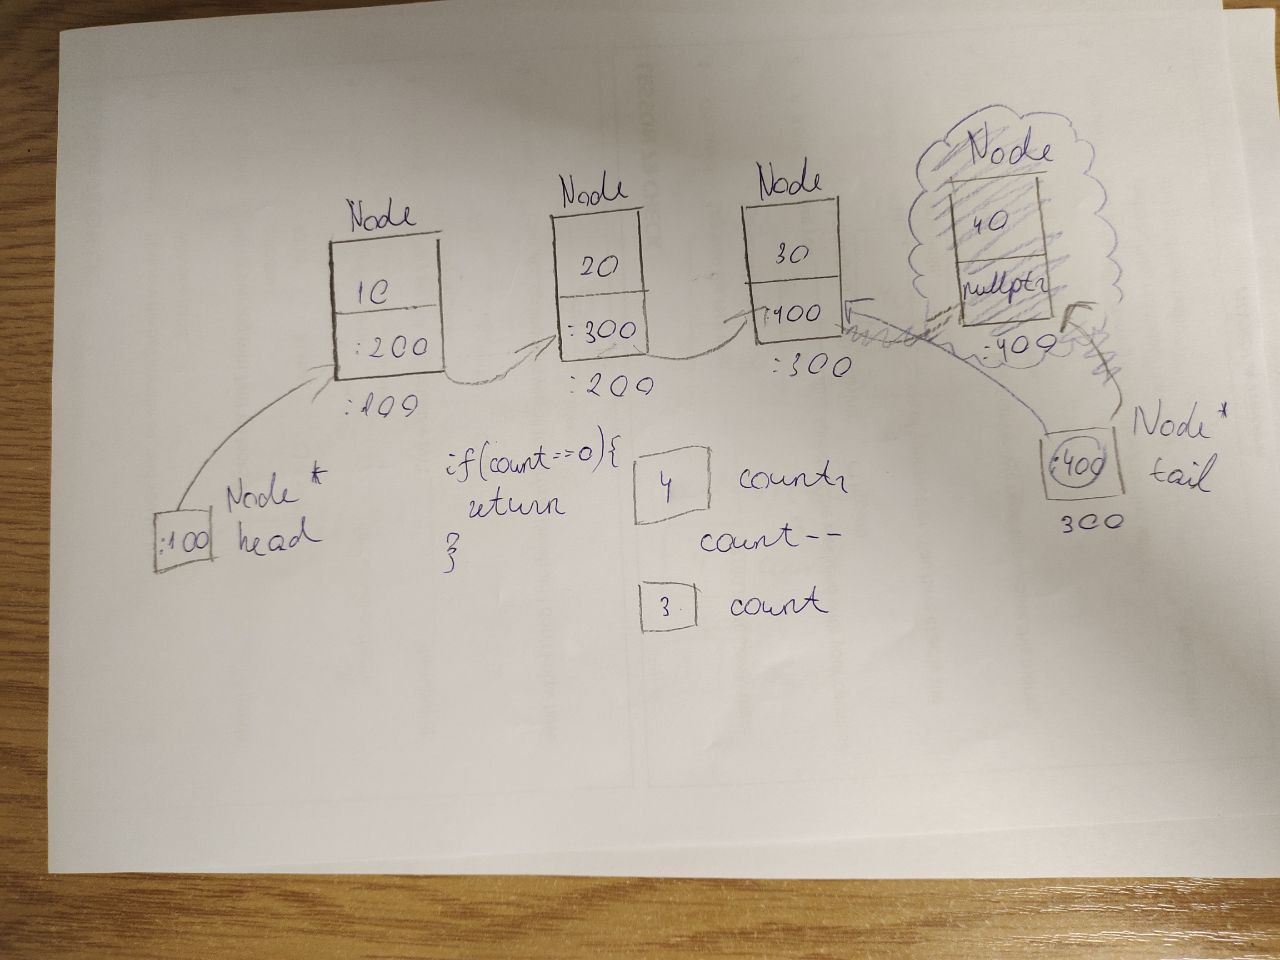 Node
10
:200
:100
Node
20
:300
:200
Node
30
:400
:300
Node
40
nullptr
:400
:100
Node *
head
if(count==0){
return
}
4
count
count--
3
count
:400
300
Node *
tail